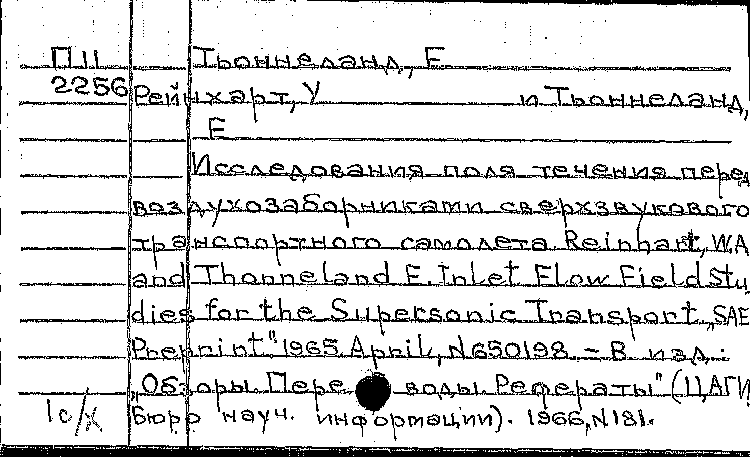 П11 Тьоннеланд, Е.
2256 Рейнхарт, У и Тьоннеланд,
Е
Исследования поля течения перед
воздухозаборниками сверхзвукового
транспортного самолета. Reinhart, W.A
and Thonneland E. Inlet Flow Field Stu
dies for the Supersonic Transport. „SAE
Preprint" 1965. April, N 650198. – В изд.:
„Обзоры. Переводы. Рефераты" (ЦАГИ
Бюро науч. информации). 1966, N 181.
1с/х